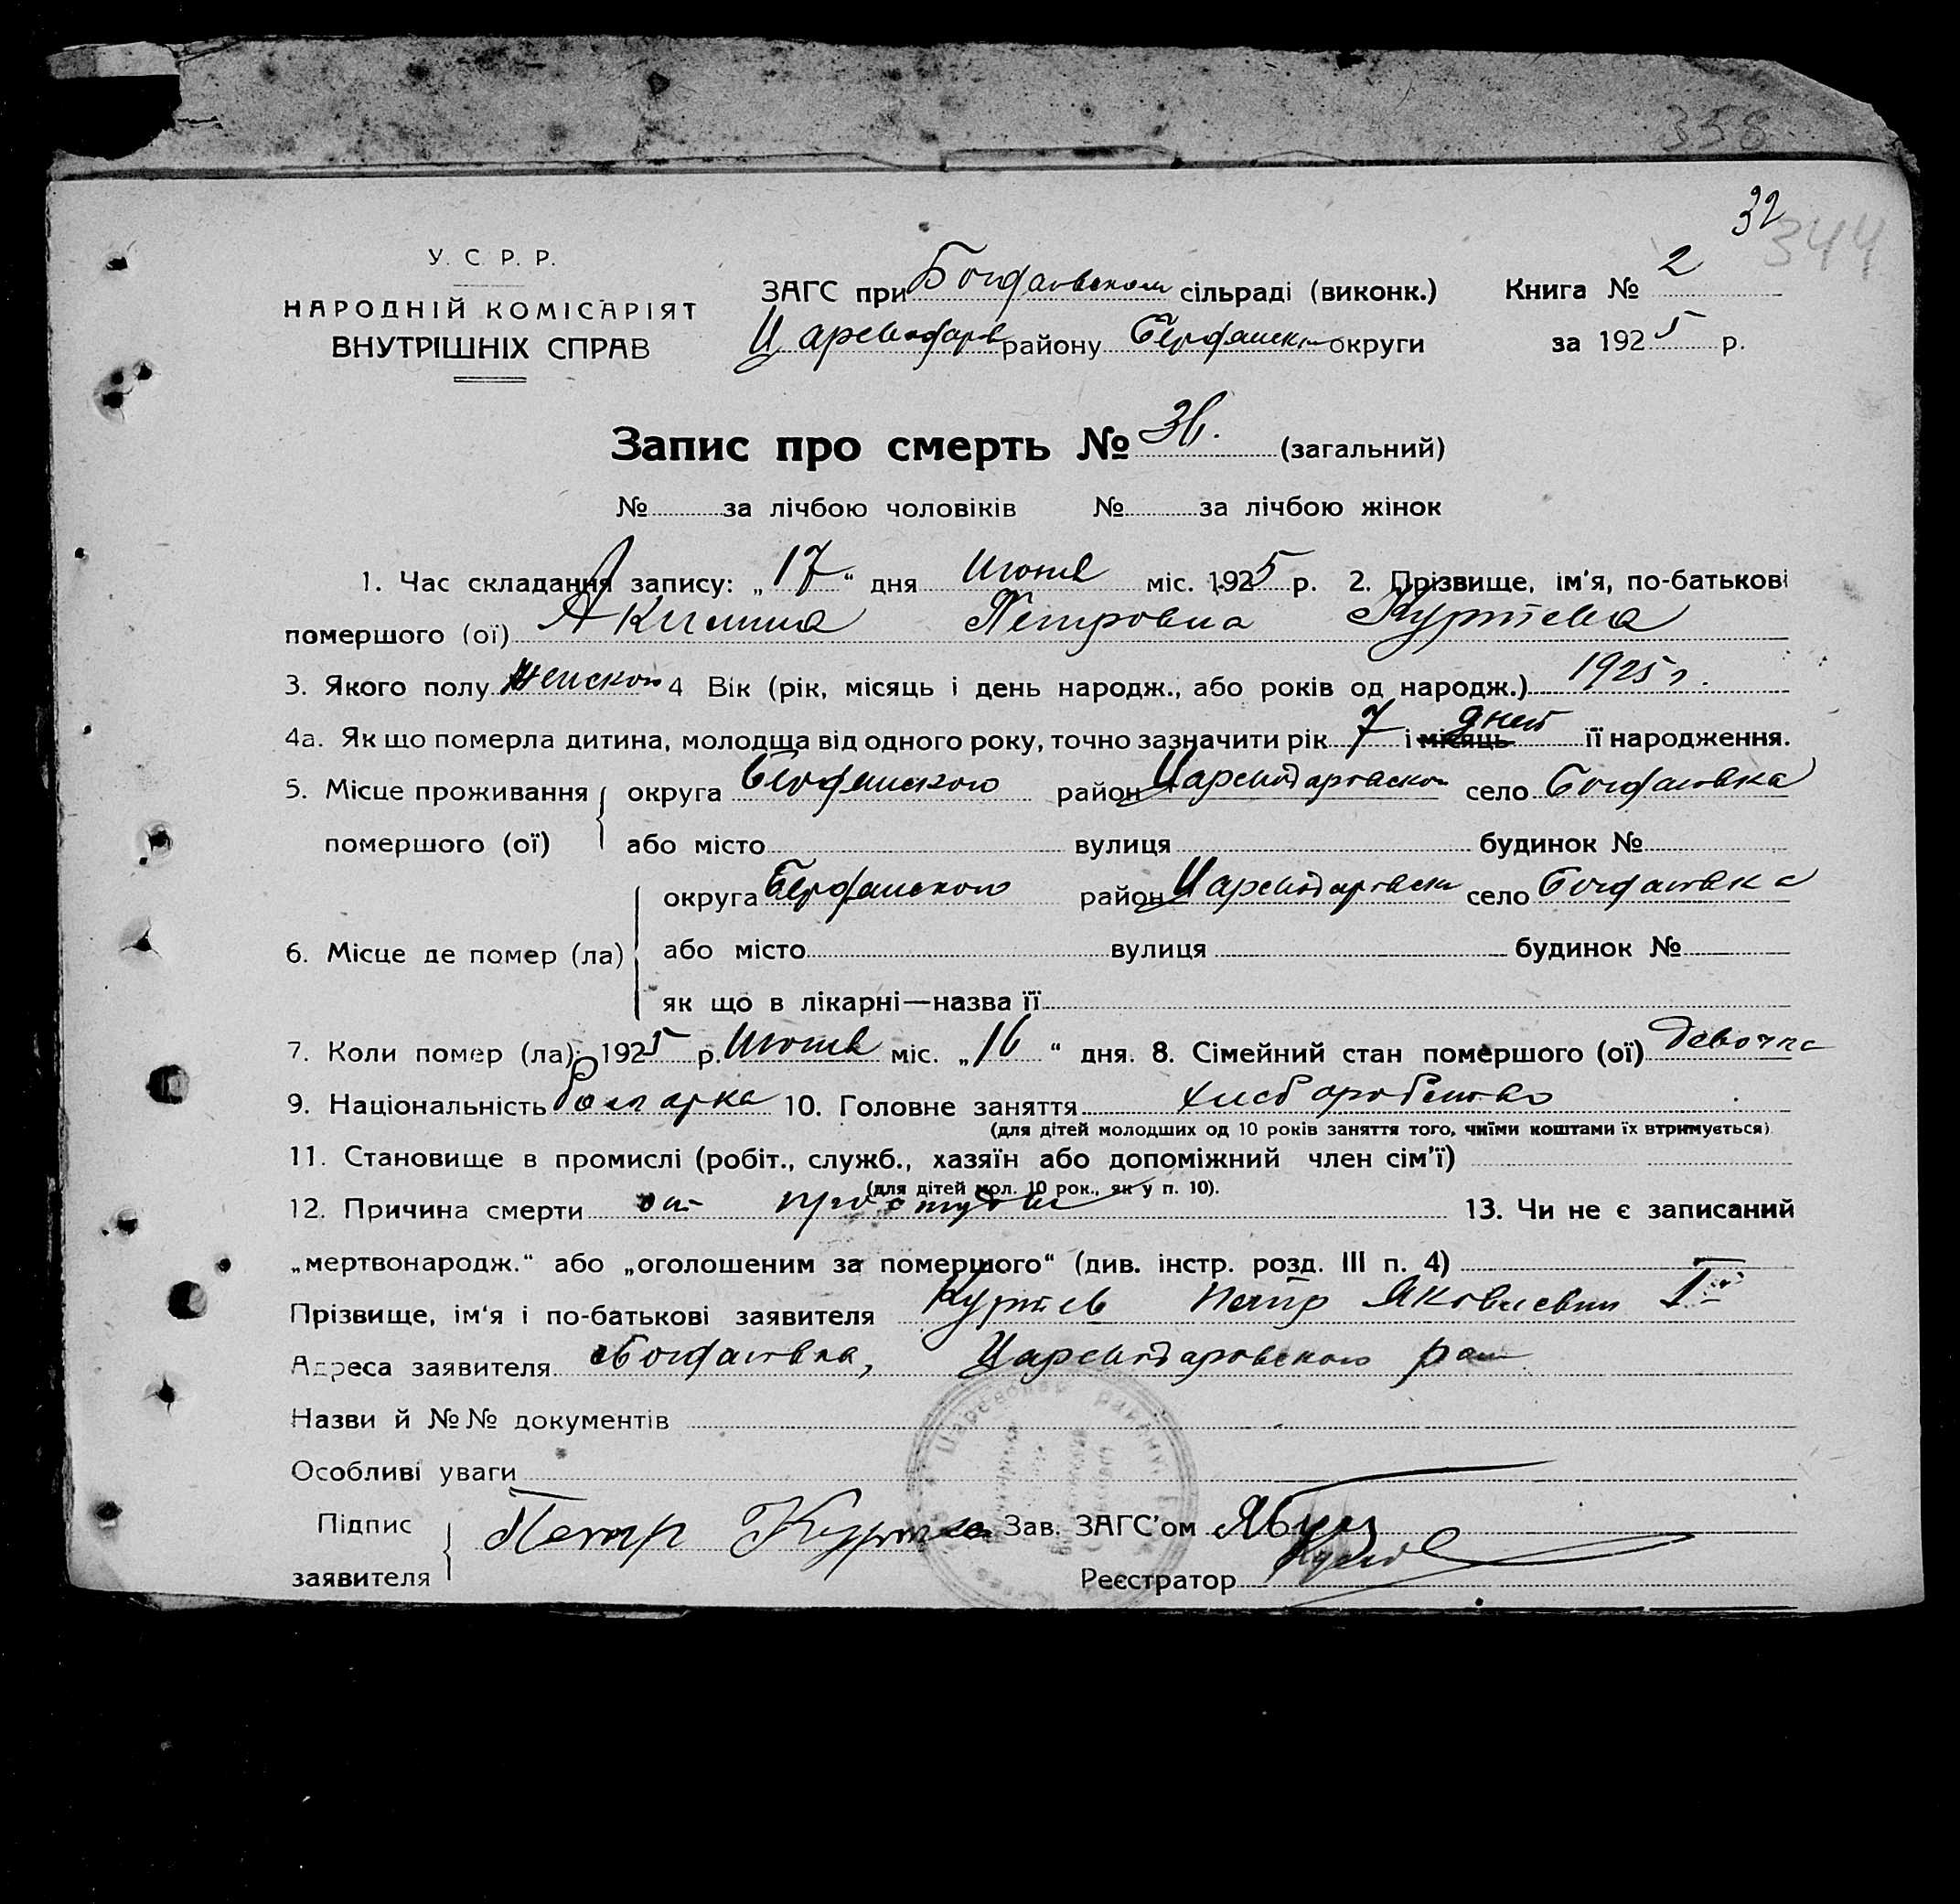 358
32
344
У. С. Р. Р.
НАРОДНІЙ КОМІСАРІЯТ
ВНУТРІШНІХ СПРАВ
ЗАГС при Богдановском сільраді (виконк.)
Цареводаров району Бердянск округи
Книга № 2
за 1925 р.
Запис про смерть № 36. (загальний)
№ за лічбою чоловіків № за лічбою жінок
1. Час складання запису: „17“ дня Июня міс. 1925 р. 2. Прізвище, ім'я, по-батькові
помершого (ої) Акилина Петровна Куртева
3. Якого полу женского 4 Вік (рік, місяць і день народж., або років од народж.) 1925 г.
4а. Як що померла дитина, молодща від одного року, точно зазначити рік 7 і місяць дней її народження.
5. Місце проживання округа Бердянского район Цареводаровском село Богдановка
помершого (ої) або місто вулиця будинок №
округа Бердянского район Цареводаровск село Богдановка
6. Місце де помер (ла) або місто вулиця будинок №
як що в лікарні—назва її
7. Коли помер (ла): 1925 р. Июня міс. „16“ дня. 8. Сімейний стан помершого (ої) девочка
9. Національність болгарка 10. Головне заняття хлебаробство
(для дітей молодших од 10 років заняття того, чиїми коштами їх втримується)
11. Становище в промислі (робіт., служб., хазяїн або допоміжний член сім'ї)
(для дітей мол. 10 рок., як у п. 10).
12. Причина смерти от простуды 13. Чи не є записаний
„мертвонародж.“ або „оголошеним за помершого“ (див. інстр. розд. III п. 4)
Прізвище, ім'я і по-батькові заявителя Куртев Петр Яковлевич Iй
Адреса заявителя Богдановка, Цареводаровского рай
Назви й №№ документів
Особливі уваги
Підпис
заявителя
Петр Куртев
Зав. ЗАГС'ом
Реєстратор